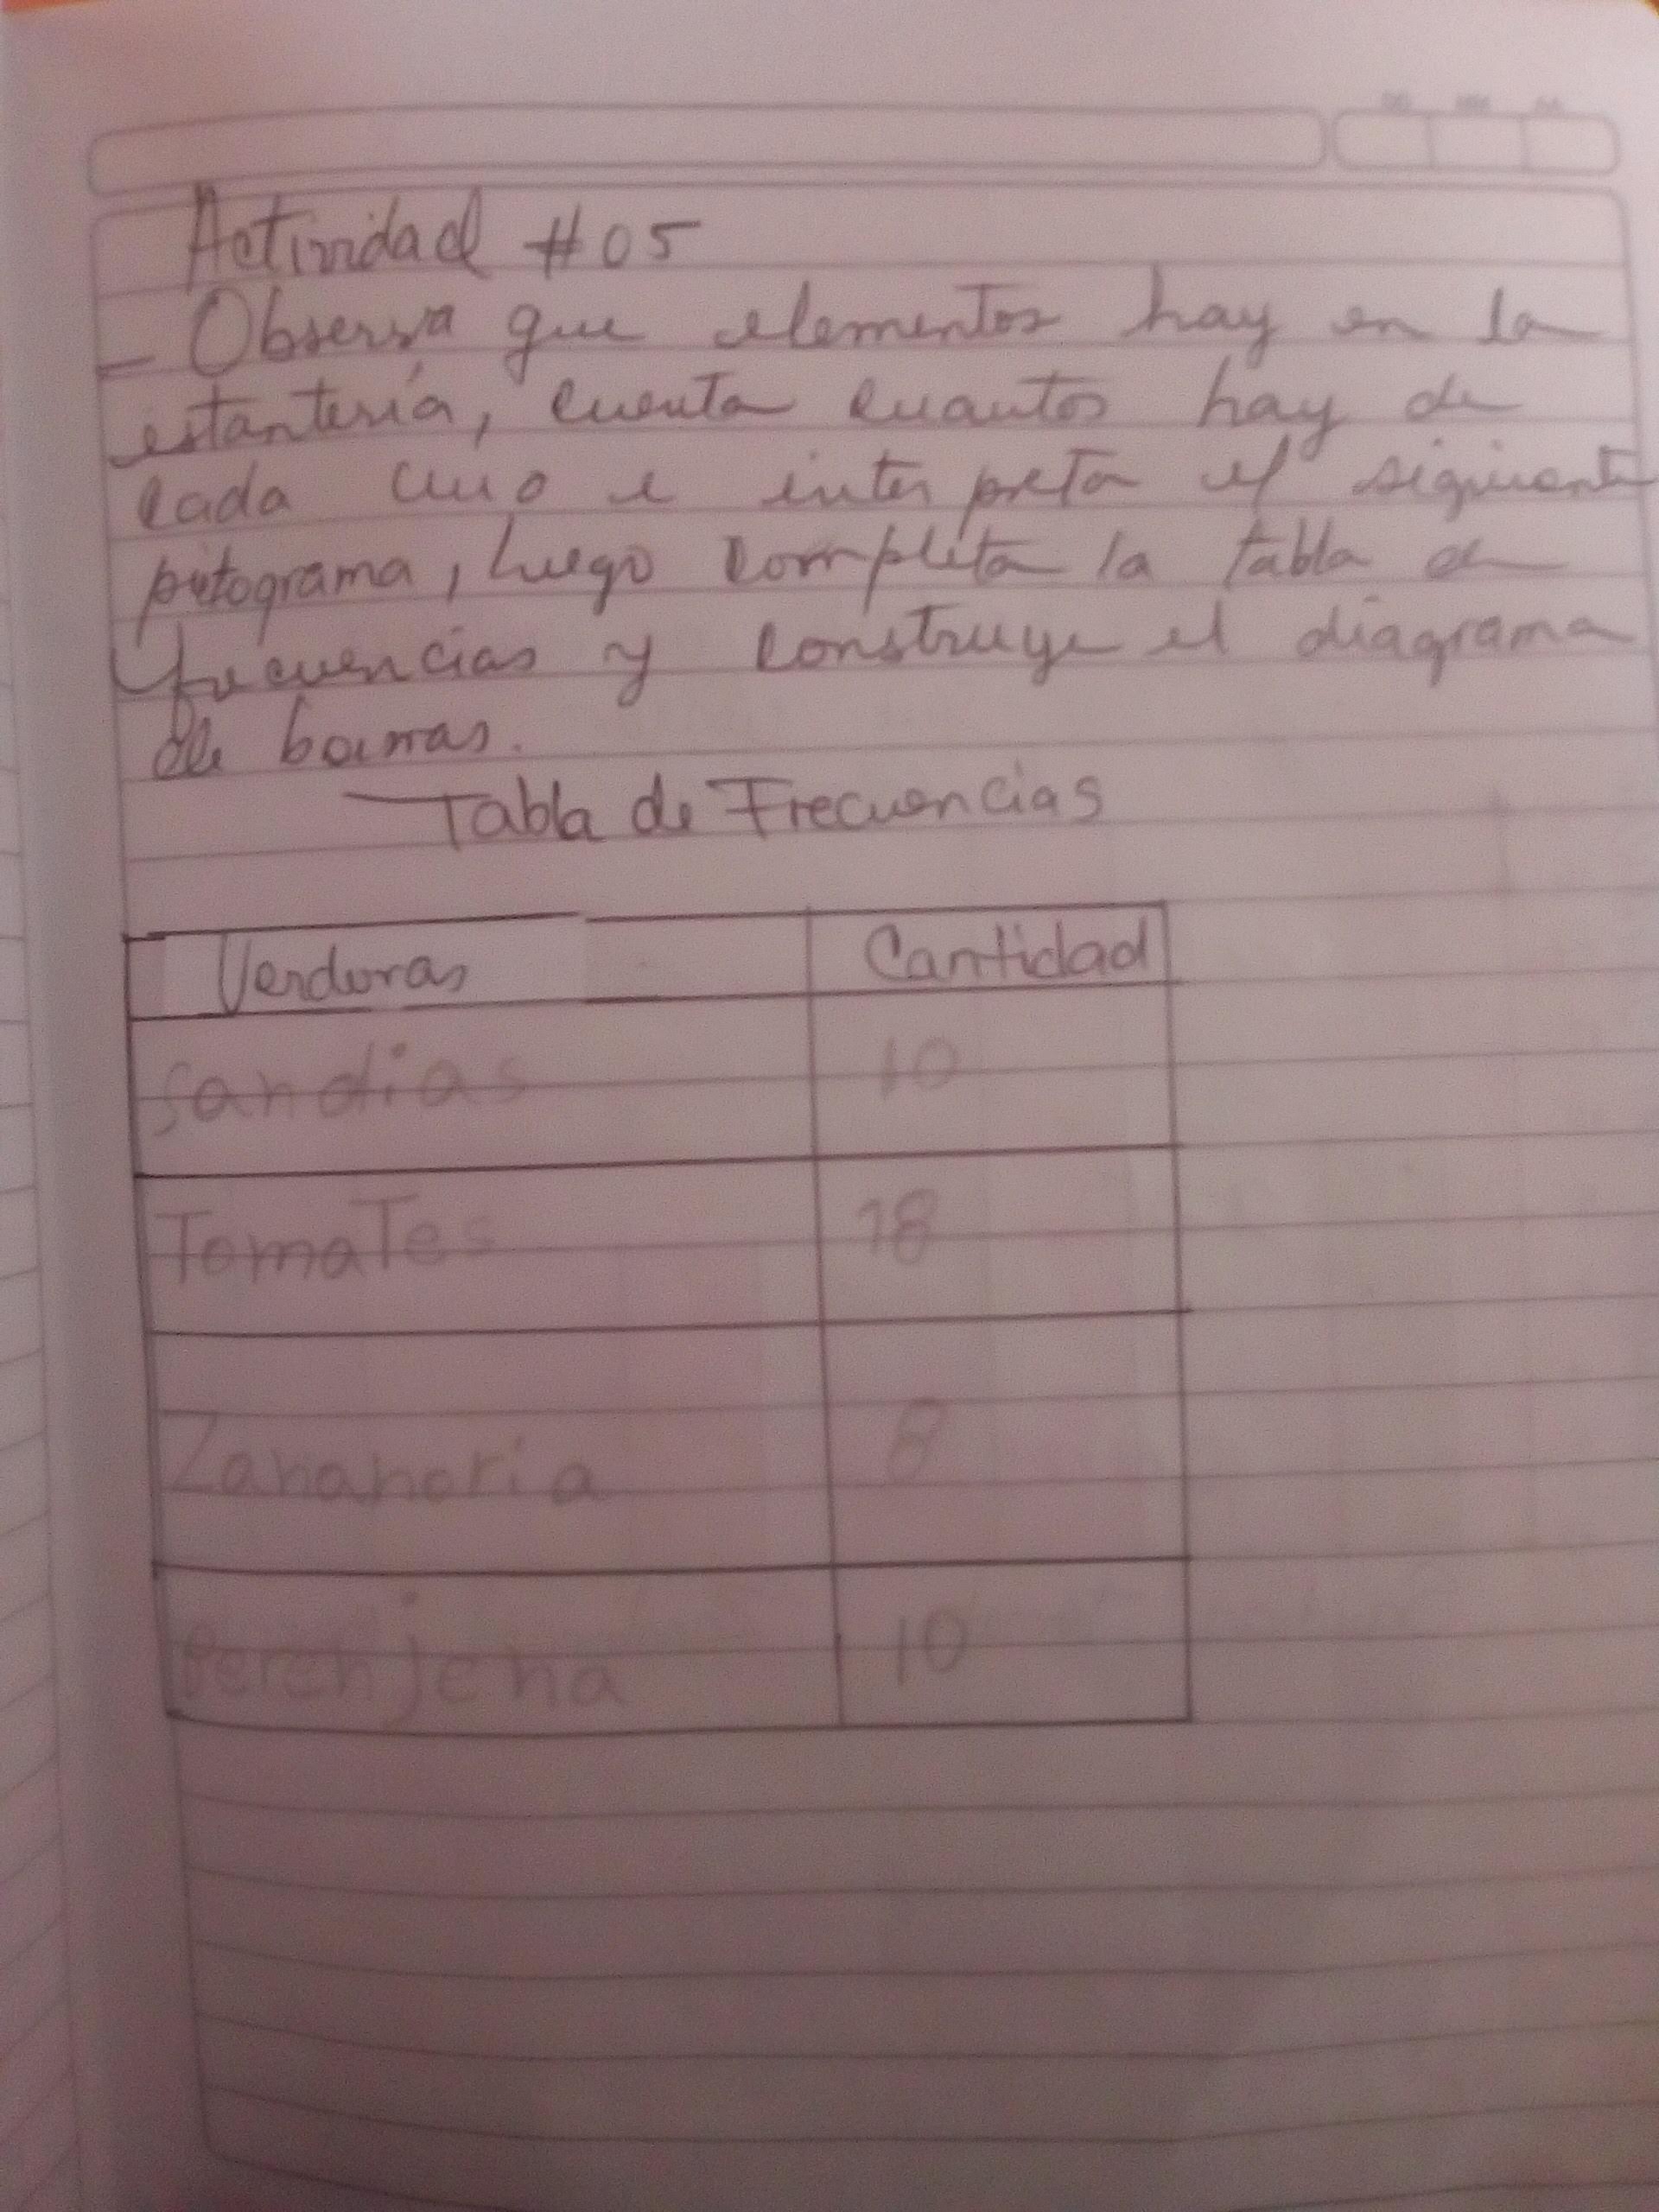 Actividad #05
- Observa que elementos hay en la
estantería, cuenta cuantos hay de
cada uno e interpreta el siguiente
pictograma, luego completa la tabla de
frecuencias y construye el diagrama
de barras.
Tabla de Frecuencias
Verduras Cantidad
Sandias 10
Tomates 18
Zanahoria 8
Berenjena 10